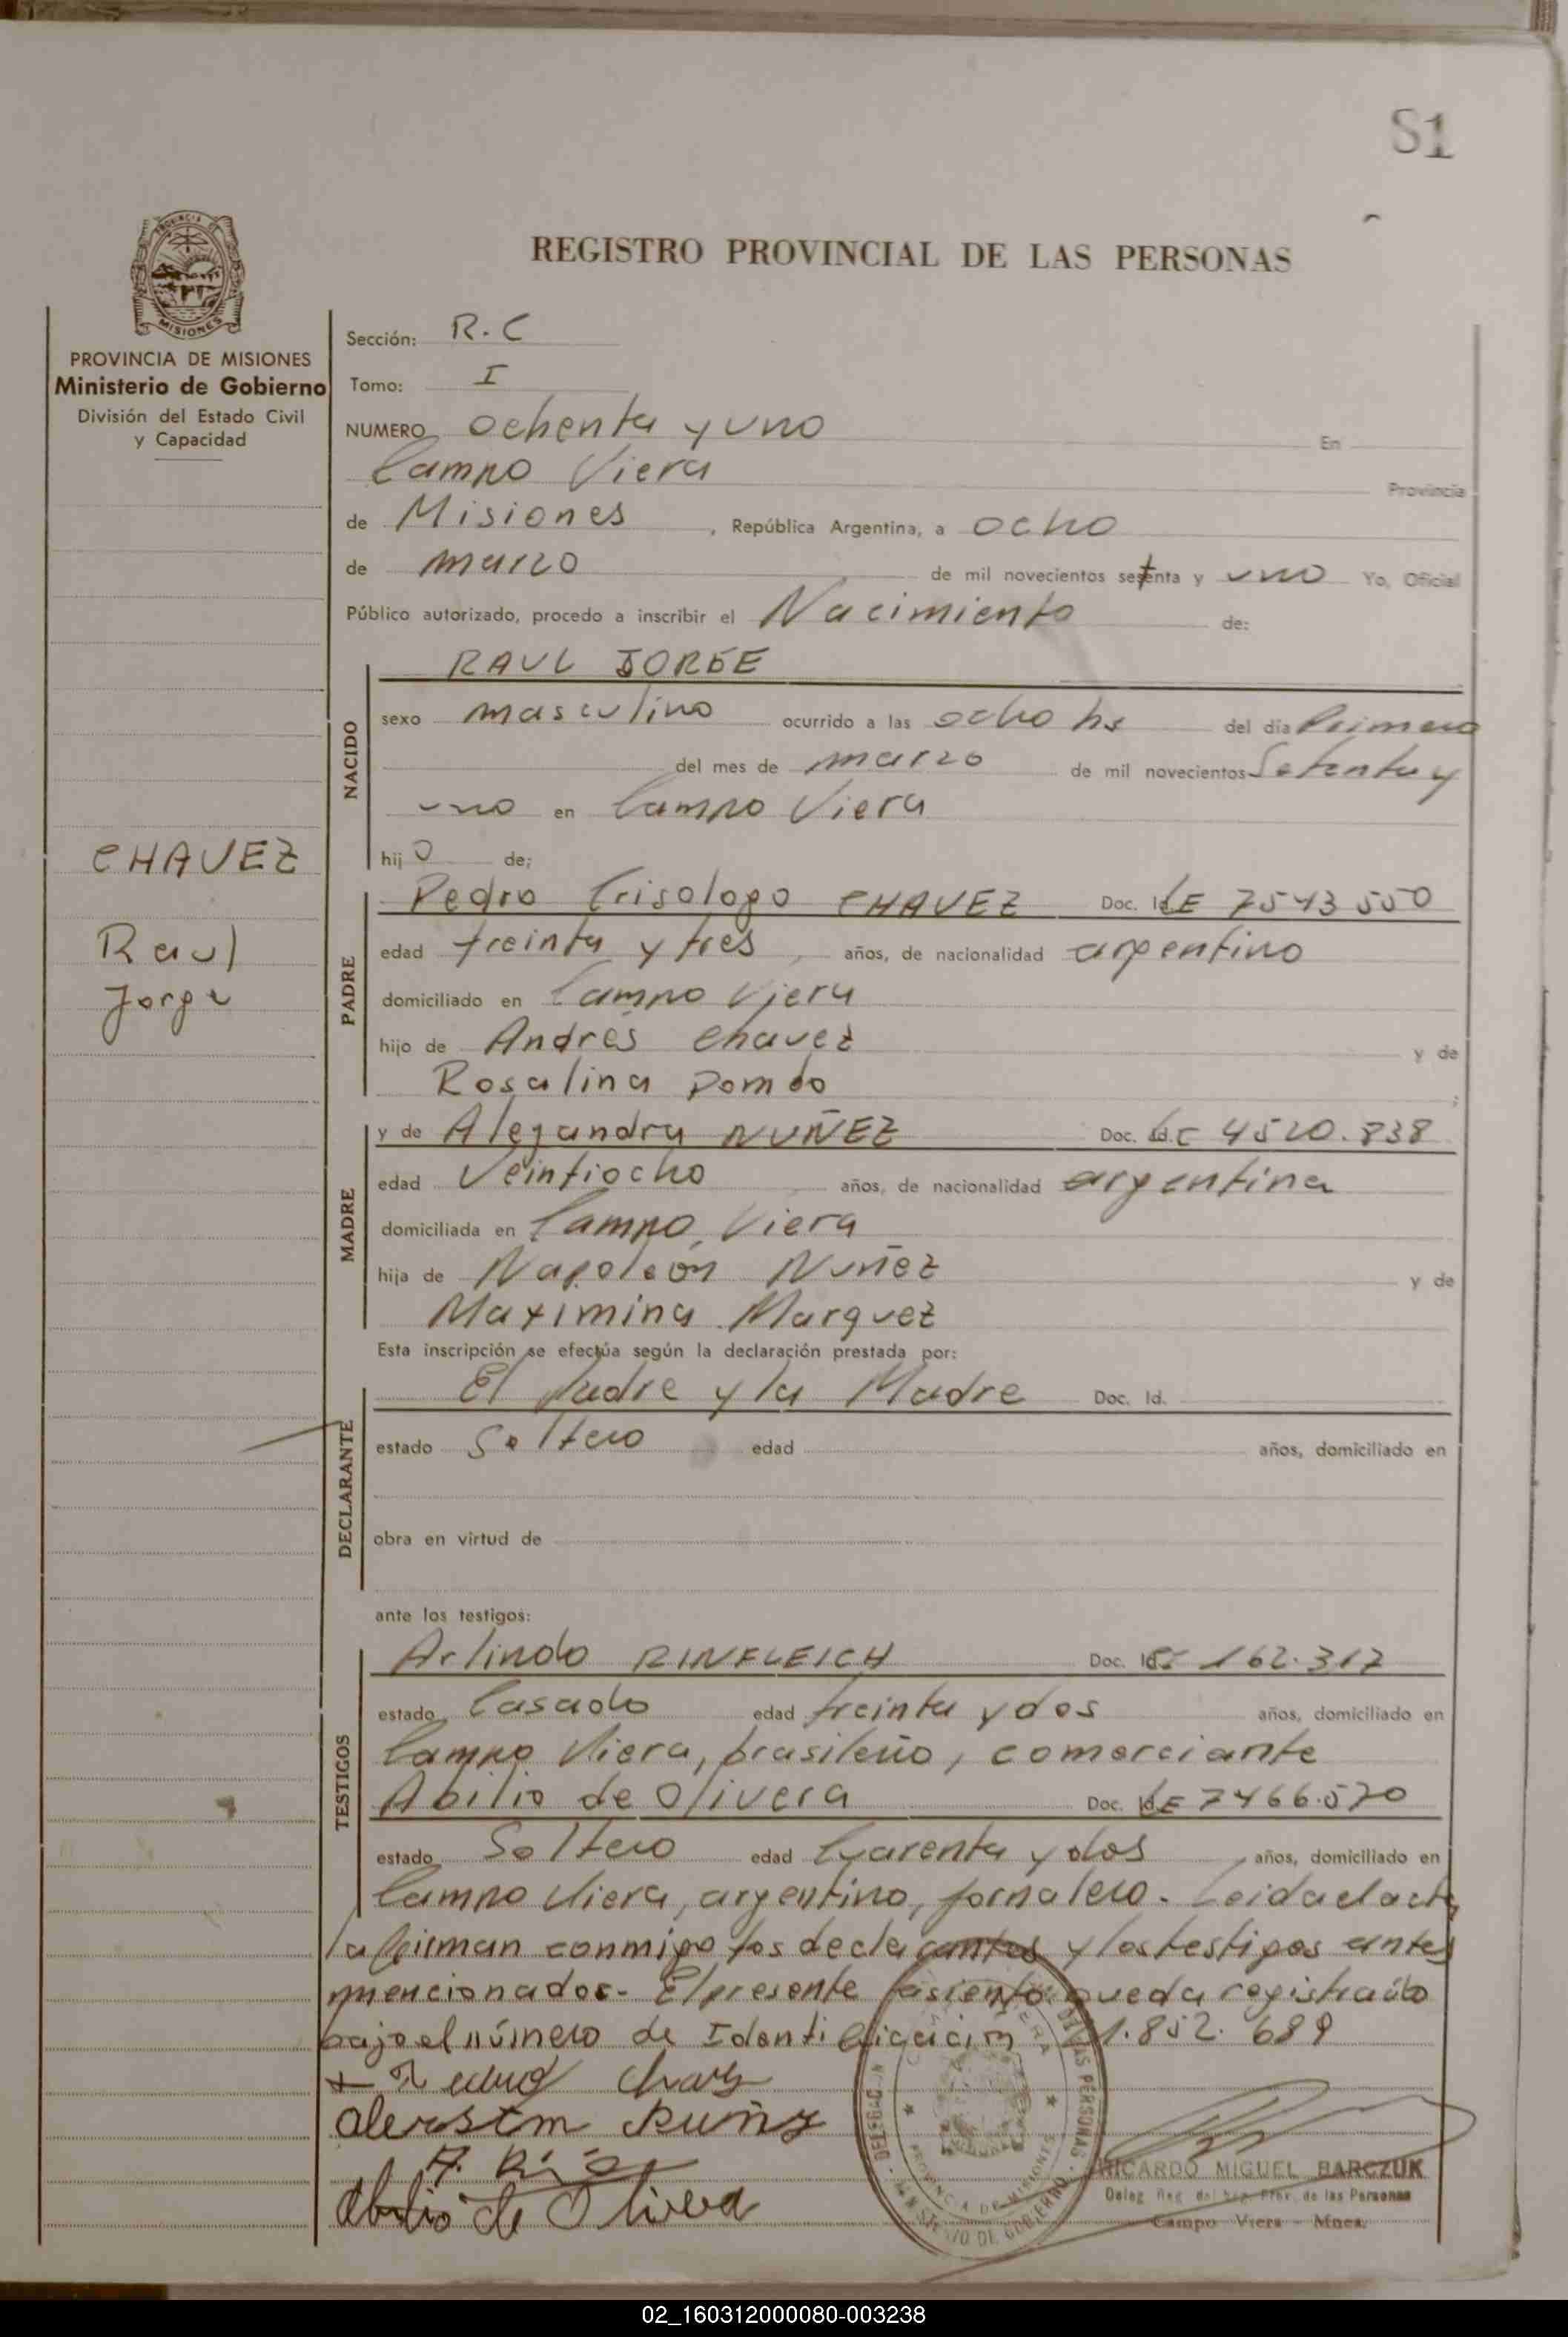 81
REGISTRO PROVINCIAL DE LAS PERSONAS
PROVINCIA DE MISIONES
Ministerio de Gobierno
División del Estado Civil
y Capacidad
Sección: R.C
Tomo: I
NUMERO ochenta y uno En
Campo Viera Provincia
de Misiones, República Argentina, a ocho
de marzo de mil novecientos setenta y uno Yo, Oficial
Público autorizado, procedo a inscribir el Nacimiento de:
NACIDO
RAUL JORGE
sexo masculino ocurrido a las ocho hs del día Primero
del mes de marzo de mil novecientos Setenta y
uno en Campo Viera
hijo de;
CHAVEZ
Raul
Jorge
PADRE
Pedro Crisologo CHAVEZ Doc. Id. LE 7543550
edad treinta y tres, años, de nacionalidad argentino
domiciliado en Campo Viera
hijo de Andrés Chavez y de
Rosalina Dombo;
MADRE
y de Alejandra NUÑEZ Doc. Id. LC 4520.838
edad Veintiocho años, de nacionalidad argentina
domiciliada en Campo Viera
hija de Napoleón Nuñez y de
Maximina Marquez
Esta inscripción se efectúa según la declaración prestada por:
DECLARANTE
El padre y la Madre Doc. Id.
estado Soltero edad años, domiciliado en
obra en virtud de
ante los testigos:
TESTIGOS
Arlindo RINFLEICH Doc. Id. 162.317
estado Casado edad treinta y dos años, domiciliado en
Campo Viera, brasileño, comerciante
Abilio de Olivera Doc. Id. LE 7466.570
estado Soltero edad Cuarenta y dos años, domiciliado en
Campo Viera, argentino, jornalero. Leida el acta
la firman conmigo los declarantes y los testigos antes
mencionados. El presente asiento queda registrado
bajo el número de Identificación 21.852.689
Chavez
Nuñez
Abilio de Olivera
DELEGACION
DE LAS PERSONAS
PROVINCIA DE MISIONES
MINISTERIO DE GOBIERNO
RICARDO MIGUEL BARCZUK
Deleg. Reg. del Reg. Prov. de las Personas
Campo Viera - Mnes.
02_160312000080-003238